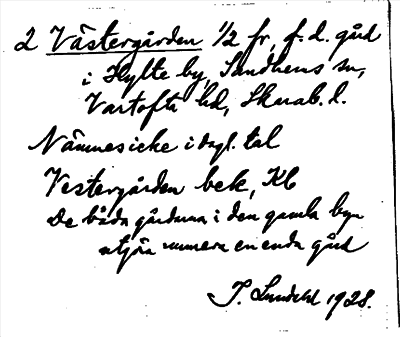 2 Västergården 1/2 fr, f. d. gård
i Hylte by, Sandhems sn,
Vartofta hd, Skarab. l.
Nämnes icke i dagl. tal
Vestergården bek, Kb
De båda gårdarna i den gamla byn
utgöra numera en enda gård
J. Lundahl 1928.